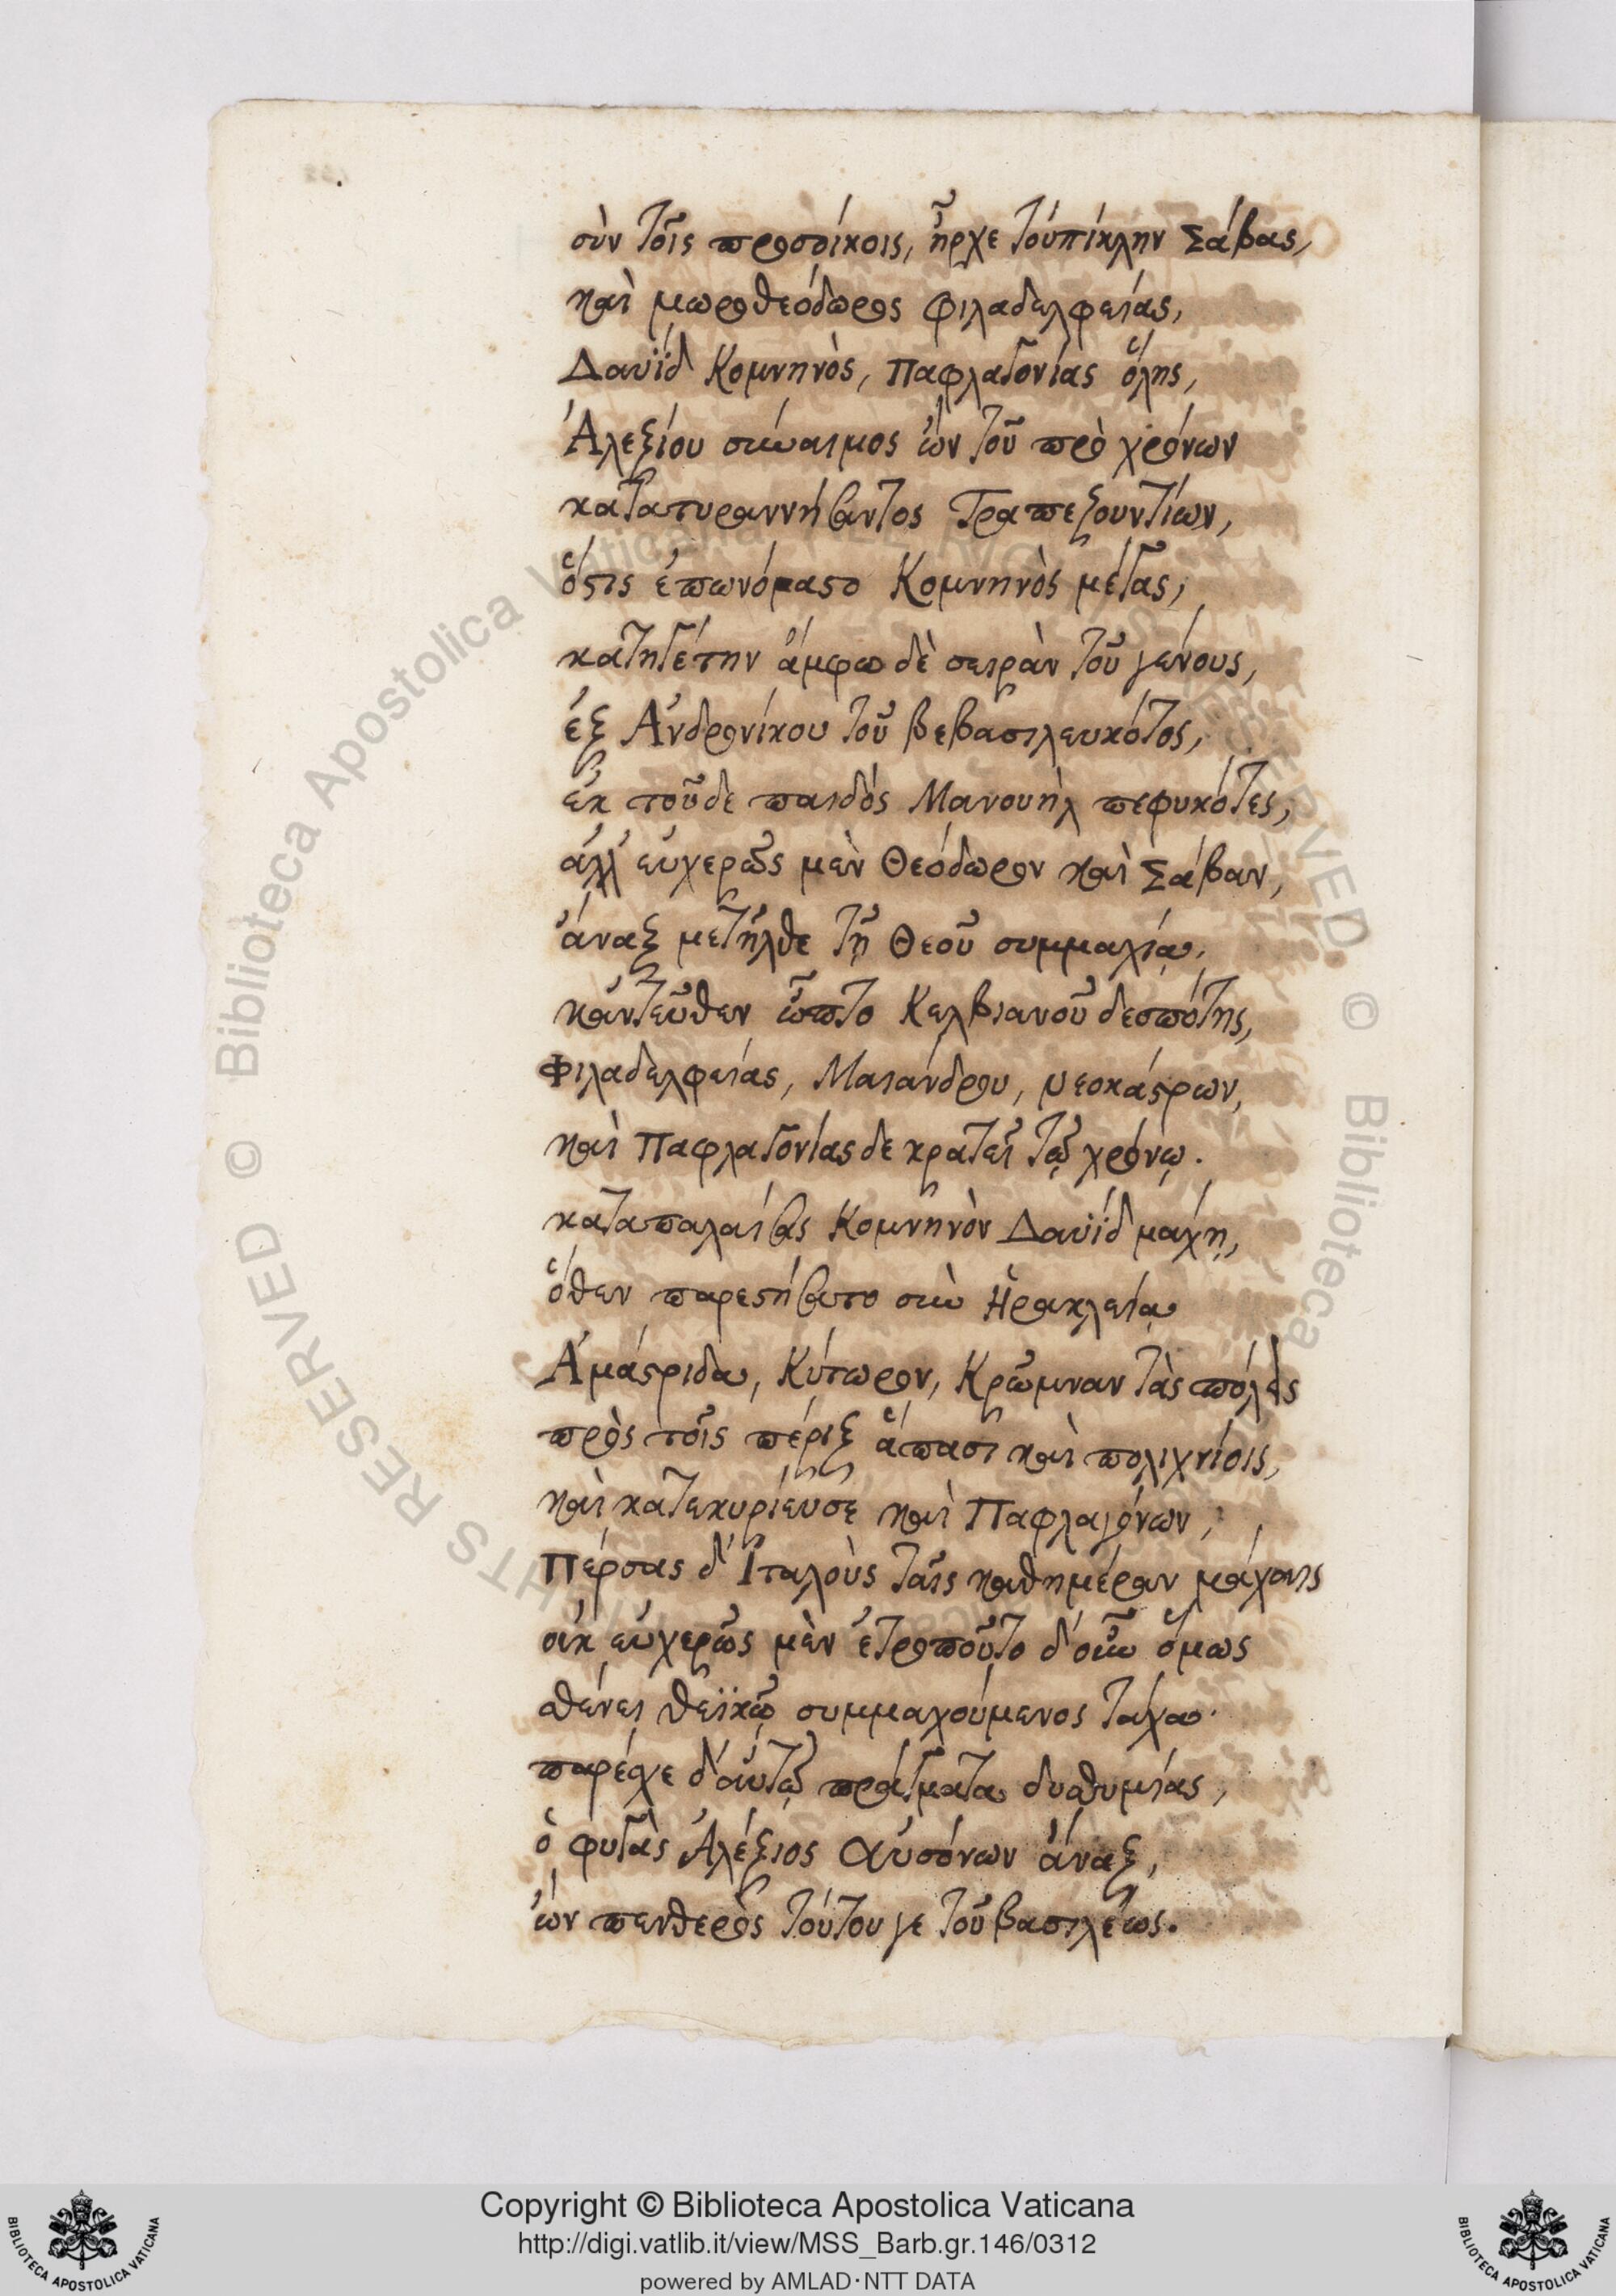 σὺν τοῖς προσοίκοις, ἦρχε τοὐπίκλην Σάβας,
καὶ μωροθεόδωρος φιλαδελφείας,
Δαυῒδ Κομνηνὸς, Παφλαγονίας ὅλης,
Ἀλεξίου σύναιμος ὢν τοῦ πρὸ χρόνων
κατατυραννήσαντος Τραπεζουντίων,
ὅστις ἐπωνόμαστο Κομνηνὸς μέγας,
κατηγέτην ἄμφω δὲ σειρὰν τοῦ γένους,
ἐξ Ἀνδρονίκου τοῦ βεβασιλευκότος,
ἐκ τοῦδε παιδὸς Μανουὴλ πεφυκότες,
ἀλλ' εὐχερῶς μὲν Θεόδωρον καὶ Σάβαν,
ἄναξ μετῆλθε τῇ Θεοῦ συμμαχίᾳ.
κἀντεῦθεν ὦπτο Κελβιανοῦ δεσπότης,
Φιλαδελφείας, Μαιάνδρου, νεοκάστρων,
καὶ Παφλαγονίας δε κρατεῖ τῷ χρόνῳ.
καταπαλαίσας Κομνηνὸν Δαυῒδ μάχῃ,
ὅθεν παρεστήσατο σὺν Ἡρακλείᾳ
Ἀμάστριδα, Κύτωρον, Κρῶμναν τὰς πόλεις
πρὸς τοῖς πέριξ ἅπασι καὶ πολιχνίοις,
καὶ κατεκυρίευσε καὶ Παφλαγόνων,
Πέρσας δ' Ἰταλοὺς ταῖς καθημέραν μάχαις
οὐκ εὐχερῶς μὲν ἐτροποῦτο δ' οὖν ὅμως
σθένει θεϊκῷ συμμαχούμενος τάχα.
παρέσχε δ' αὐτῷ πράγματα δυσθυμίας,
ὁ φυγὰς Ἀλέξιος Αὐσόνων ἄναξ,
ὢν πενθερὸς τούτου γε τοῦ βασιλέως.
Copyright © Biblioteca Apostolica Vaticana
http://digi.vatlib.it/view/MSS_Barb.gr.146/0312
powered by AMLAD·NTT DATA